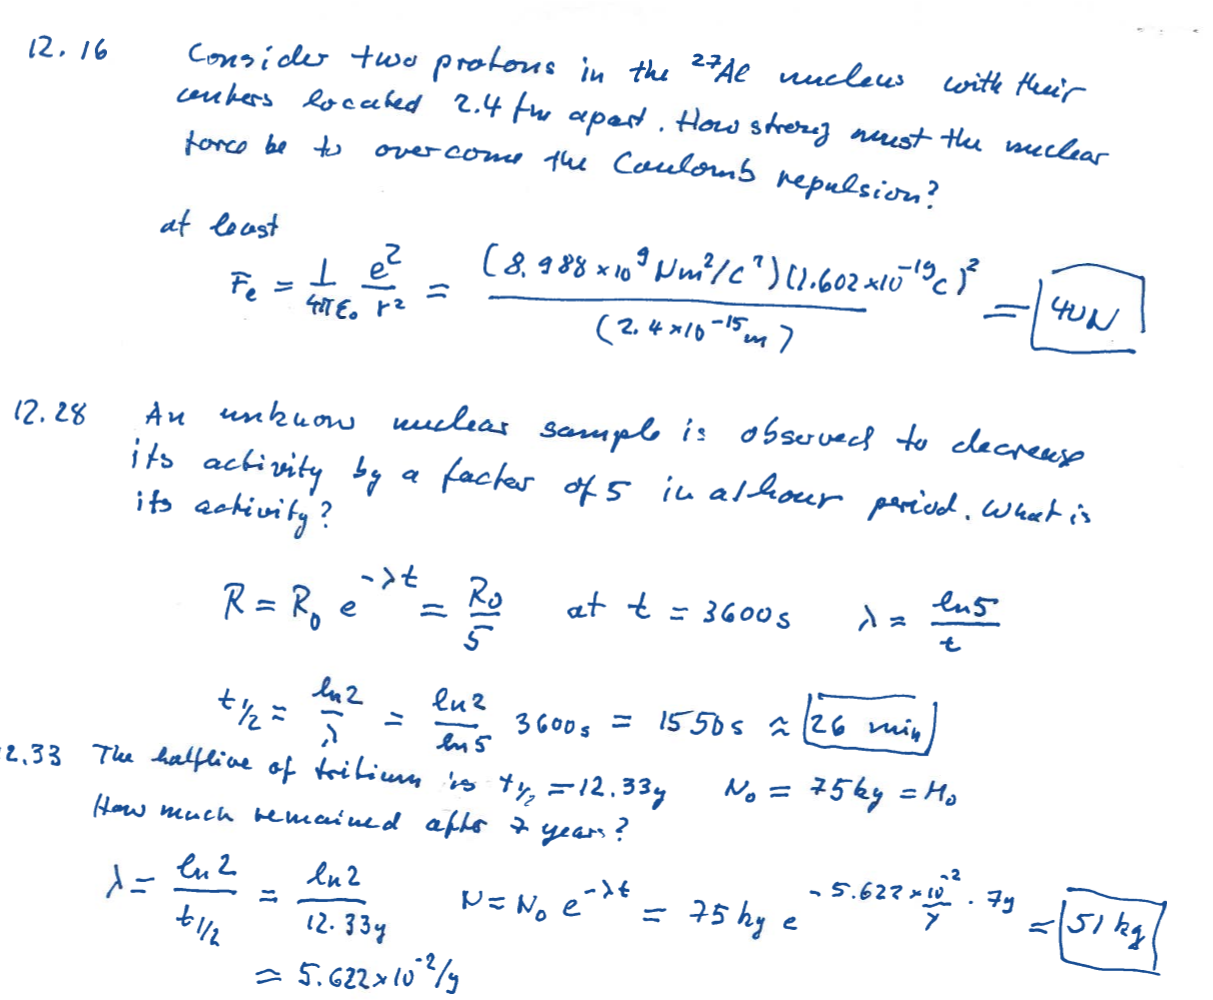 12.16 Consider two protons in the ²⁷Al nucleus with their
centers located 2.4 fm apart. How strong must the nuclear
force be to overcome the Coulomb repulsion?
at least
Fe = 1/4πε₀ e²/r² = (8.988×10⁹ Nm²/C²)(1.602×10⁻¹⁹C)² / (2.4×10⁻¹⁵m) = 40N
12.28 An unknow nuclear sample is observed to decrease
its activity by a factor of 5 in a 1 hour period. What is
its activity?
R = R₀ e^(-λt) = R₀/5 at t = 3600s λ = ln5/t
t½ = ln2/λ = ln2/ln5 3600s = 1550s ≈ 26 min
2.33 The halflive of tritium is t½ = 12.33y N₀ = 75kg = M₀
How much remained after 7 years?
λ = ln2/t1/2 = ln2/12.33y N = N₀ e^(-λt) = 75kg e^(-5.622×10⁻²/y · 7y) = 51 kg
= 5.622×10⁻²/y